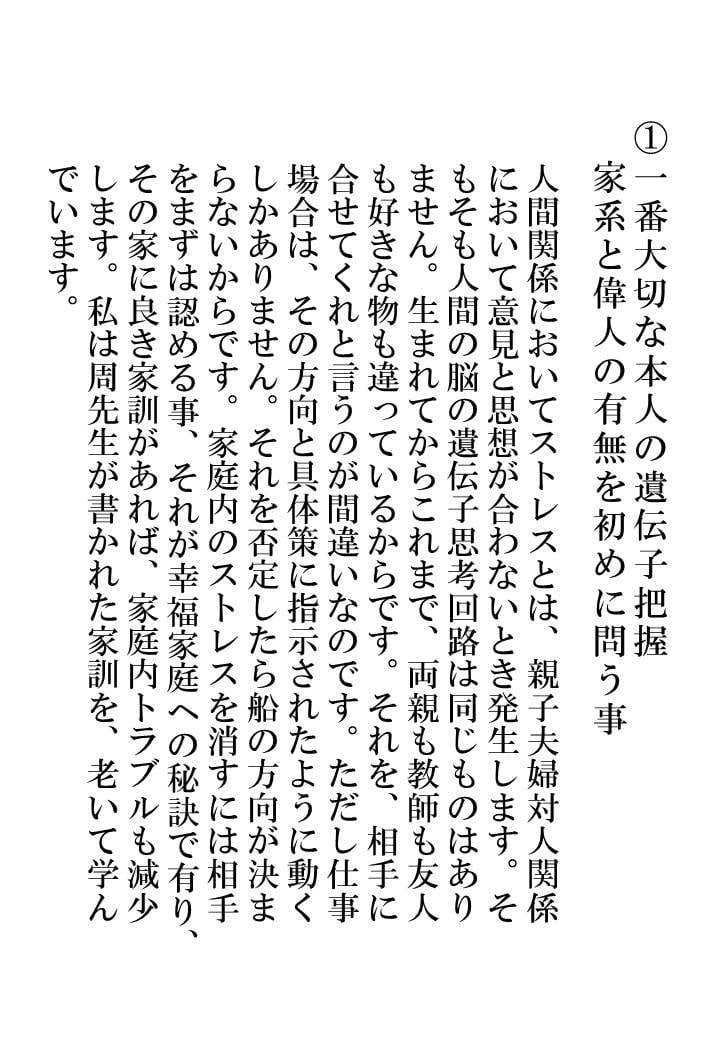 ①一番大切な本人の遺伝子把握
家系と偉人の有無を初めに問う事
人間関係においてストレスとは、親子夫婦対人関係
において意見と思想が合わないとき発生します。そ
もそも人間の脳の遺伝子思考回路は同じものはあり
ません。生まれてからこれまで、両親も教師も友人
も好きな物も違っているからです。それを、相手に
合せてくれと言うのが間違いなのです。ただし仕事
場合は、その方向と具体策に指示されたように動く
しかありません。それを否定したら船の方向が決ま
らないからです。家庭内のストレスを消すには相手
をまずは認める事、それが幸福家庭への秘訣で有り、
その家に良き家訓があれば、家庭内トラブルも減少
します。私は周先生が書かれた家訓を、老いて学ん
でいます。